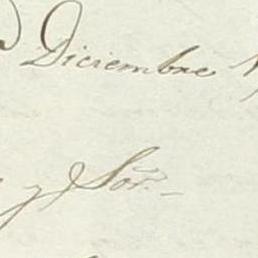 Diciembre
y Sor.